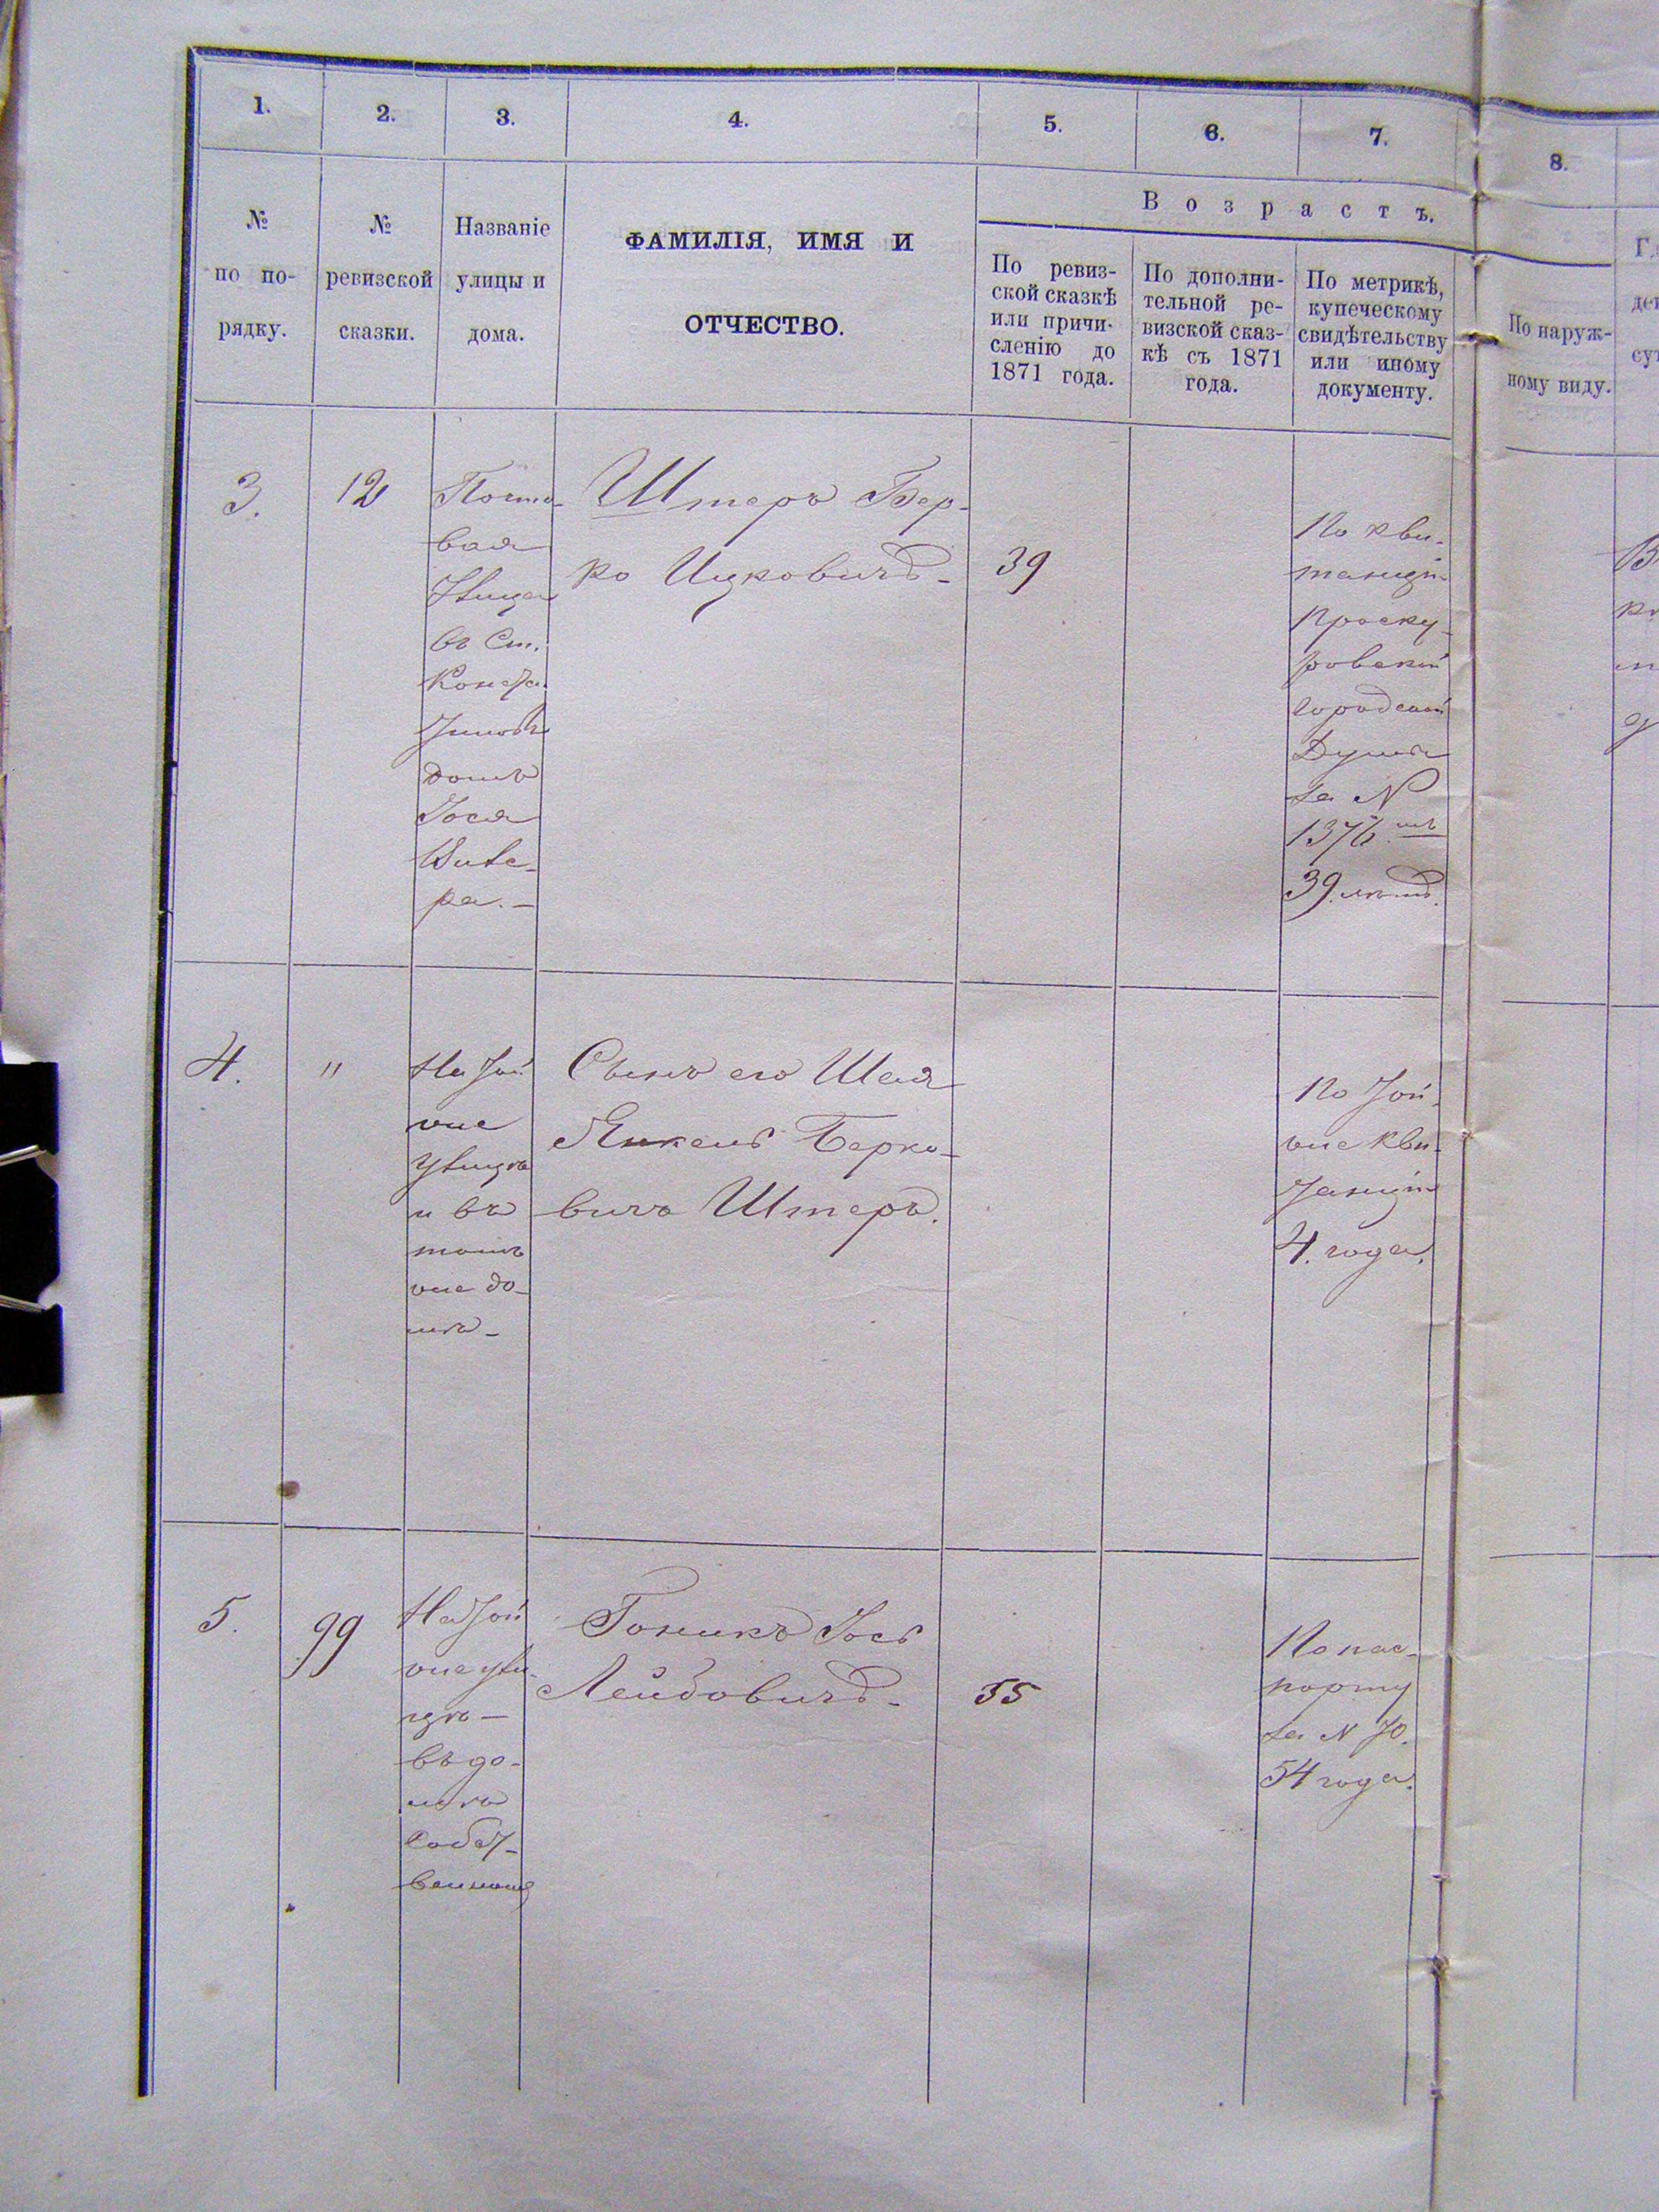 1. 2. 3. 4. 5. 6. 7. 8.
№
по по-
рядку.
№
ревизской
сказки.
Названіе
улицы и
дома.
ФАМИЛІЯ, ИМЯ И
ОТЧЕСТВО.
Возрастъ.
По ревиз-
ской сказкѣ
или причи-
сленію до
1871 года.
По дополни-
тельной ре-
визской сказ-
кѣ съ 1871
года.
По метрикѣ,
купеческому
свидѣтельству
или иному
документу.
По наруж-
ному виду.
3.
12
Почто-
вая
Улица
въ Ст.
Конста
тиновѣ
домъ
Іося
ра.-
Штеръ Бер-
ко Ицковичъ-
39
По кви-
танціи
Проску-
ровской
городской
Думы
за N
1376.
39. лѣтъ.
4.
"
На той
же
улицѣ
и въ
томъ
же до-
мѣ-
Сынъ его Шая
Янкель Берко-
вичъ Штеръ.
По той-
же кви-
танціи
4. года.
5.
99
На той
же ули-
цѣ-
въ до-
мѣ
собст-
венномъ
Гоникъ Іось
Лейбовичъ-
55
По пас-
порту
за N 70.
54 года.